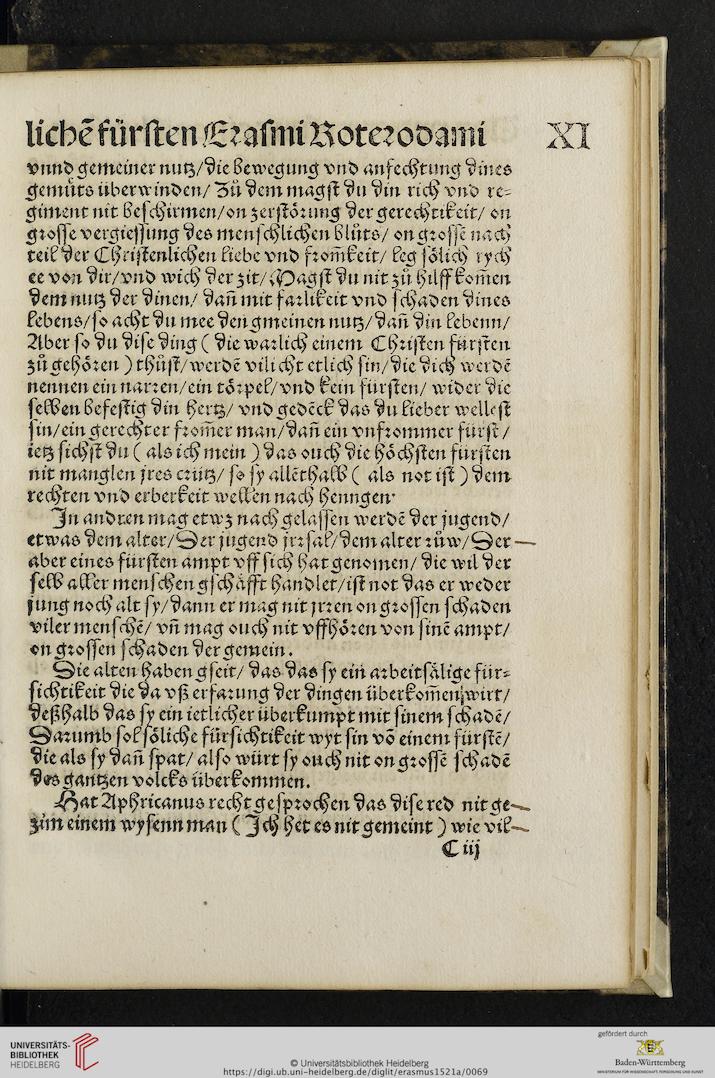 lichē fürsten Erasmi Roterodami XI
vnnd gemeiner nutz/die bewegung vnd anfechtung dines
gemüts überwinden/ Zů dem magst du din rich vnd re-
giment nit beschirmen/on zerstörung der gerechtikeit/ on
grosse vergiessung des menschlichen blůts/ on grosse nach
teil der Christenlichen liebe vnd fromkeit/ leg sölich rych
ee von dir/vnd wich der zit/ Magst du nit zů hilff komen
dem nutz der dinen/ dañ mit farlikeit vnd schaden dines
lebens/so acht du mee den gmeinen nutz/dañ din lebenn/
Aber so du dise ding ( die warlich einem Christen fürsten
zů gehören ) thůst/werdē vilicht etlich sin/die dich werdē
nennen ein narren/ein törpel/vnd kein fürsten/ wider die
selben befestig din hertz/ vnd gedēck das du lieber wellest
sin/ein gerechter from̄er man/dañ ein vnfrommer fürst /
ietz sichst du ( als ich mein ) das ouch die höchsten fürsten
nit manglen jres crütz/ so sy allēthalb ( als not ist ) dem
rechten vnd erberkeit wellen nach henngen·
In andren mag etwz nach gelassen werdē der jugend/
etwas dem alter/Der jugend jrrsal/dem alter růw/Der
aber eines fürsten ampt vff sich hat genomen/ die wil der
selb aller menschen gschäfft handlet/ist not das er weder
jung noch alt sy/dann er mag nit jrren on grossen schaden
viler menschē/ vñ mag ouch nit vffhören von sinē ampt/
on grossen schaden der gemein.
Die alten haben gseit/ das das sy ein arbeitsälige für-
sichtikeit die da vß erfarung der dingen überkom̄en wirt/
deßhalb das sy ein ietlicher überkumpt mit sinem schadē/
Darumb sol söliche fürsichtikeit wyt sin vō einem fürstē/
die als sy dañ spat/ also würt sy ouch nit on grosse schadē
des gantzen volcks überkommen.
Hat Aphricanus recht gesprochen das dise red nit ge-
zim einem wysenn man ( Ich het es nit gemeint ) wie vil
C iij
UNIVERSITÄTS-
BIBLIOTHEK
HEIDELBERG
© Universitätsbibliothek Heidelberg
https://digi.ub.uni-heidelberg.de/diglit/erasmus1521a/0069
gefördert durch
Baden-Württemberg
MINISTERIUM FÜR WISSENSCHAFT, FORSCHUNG UND KUNST